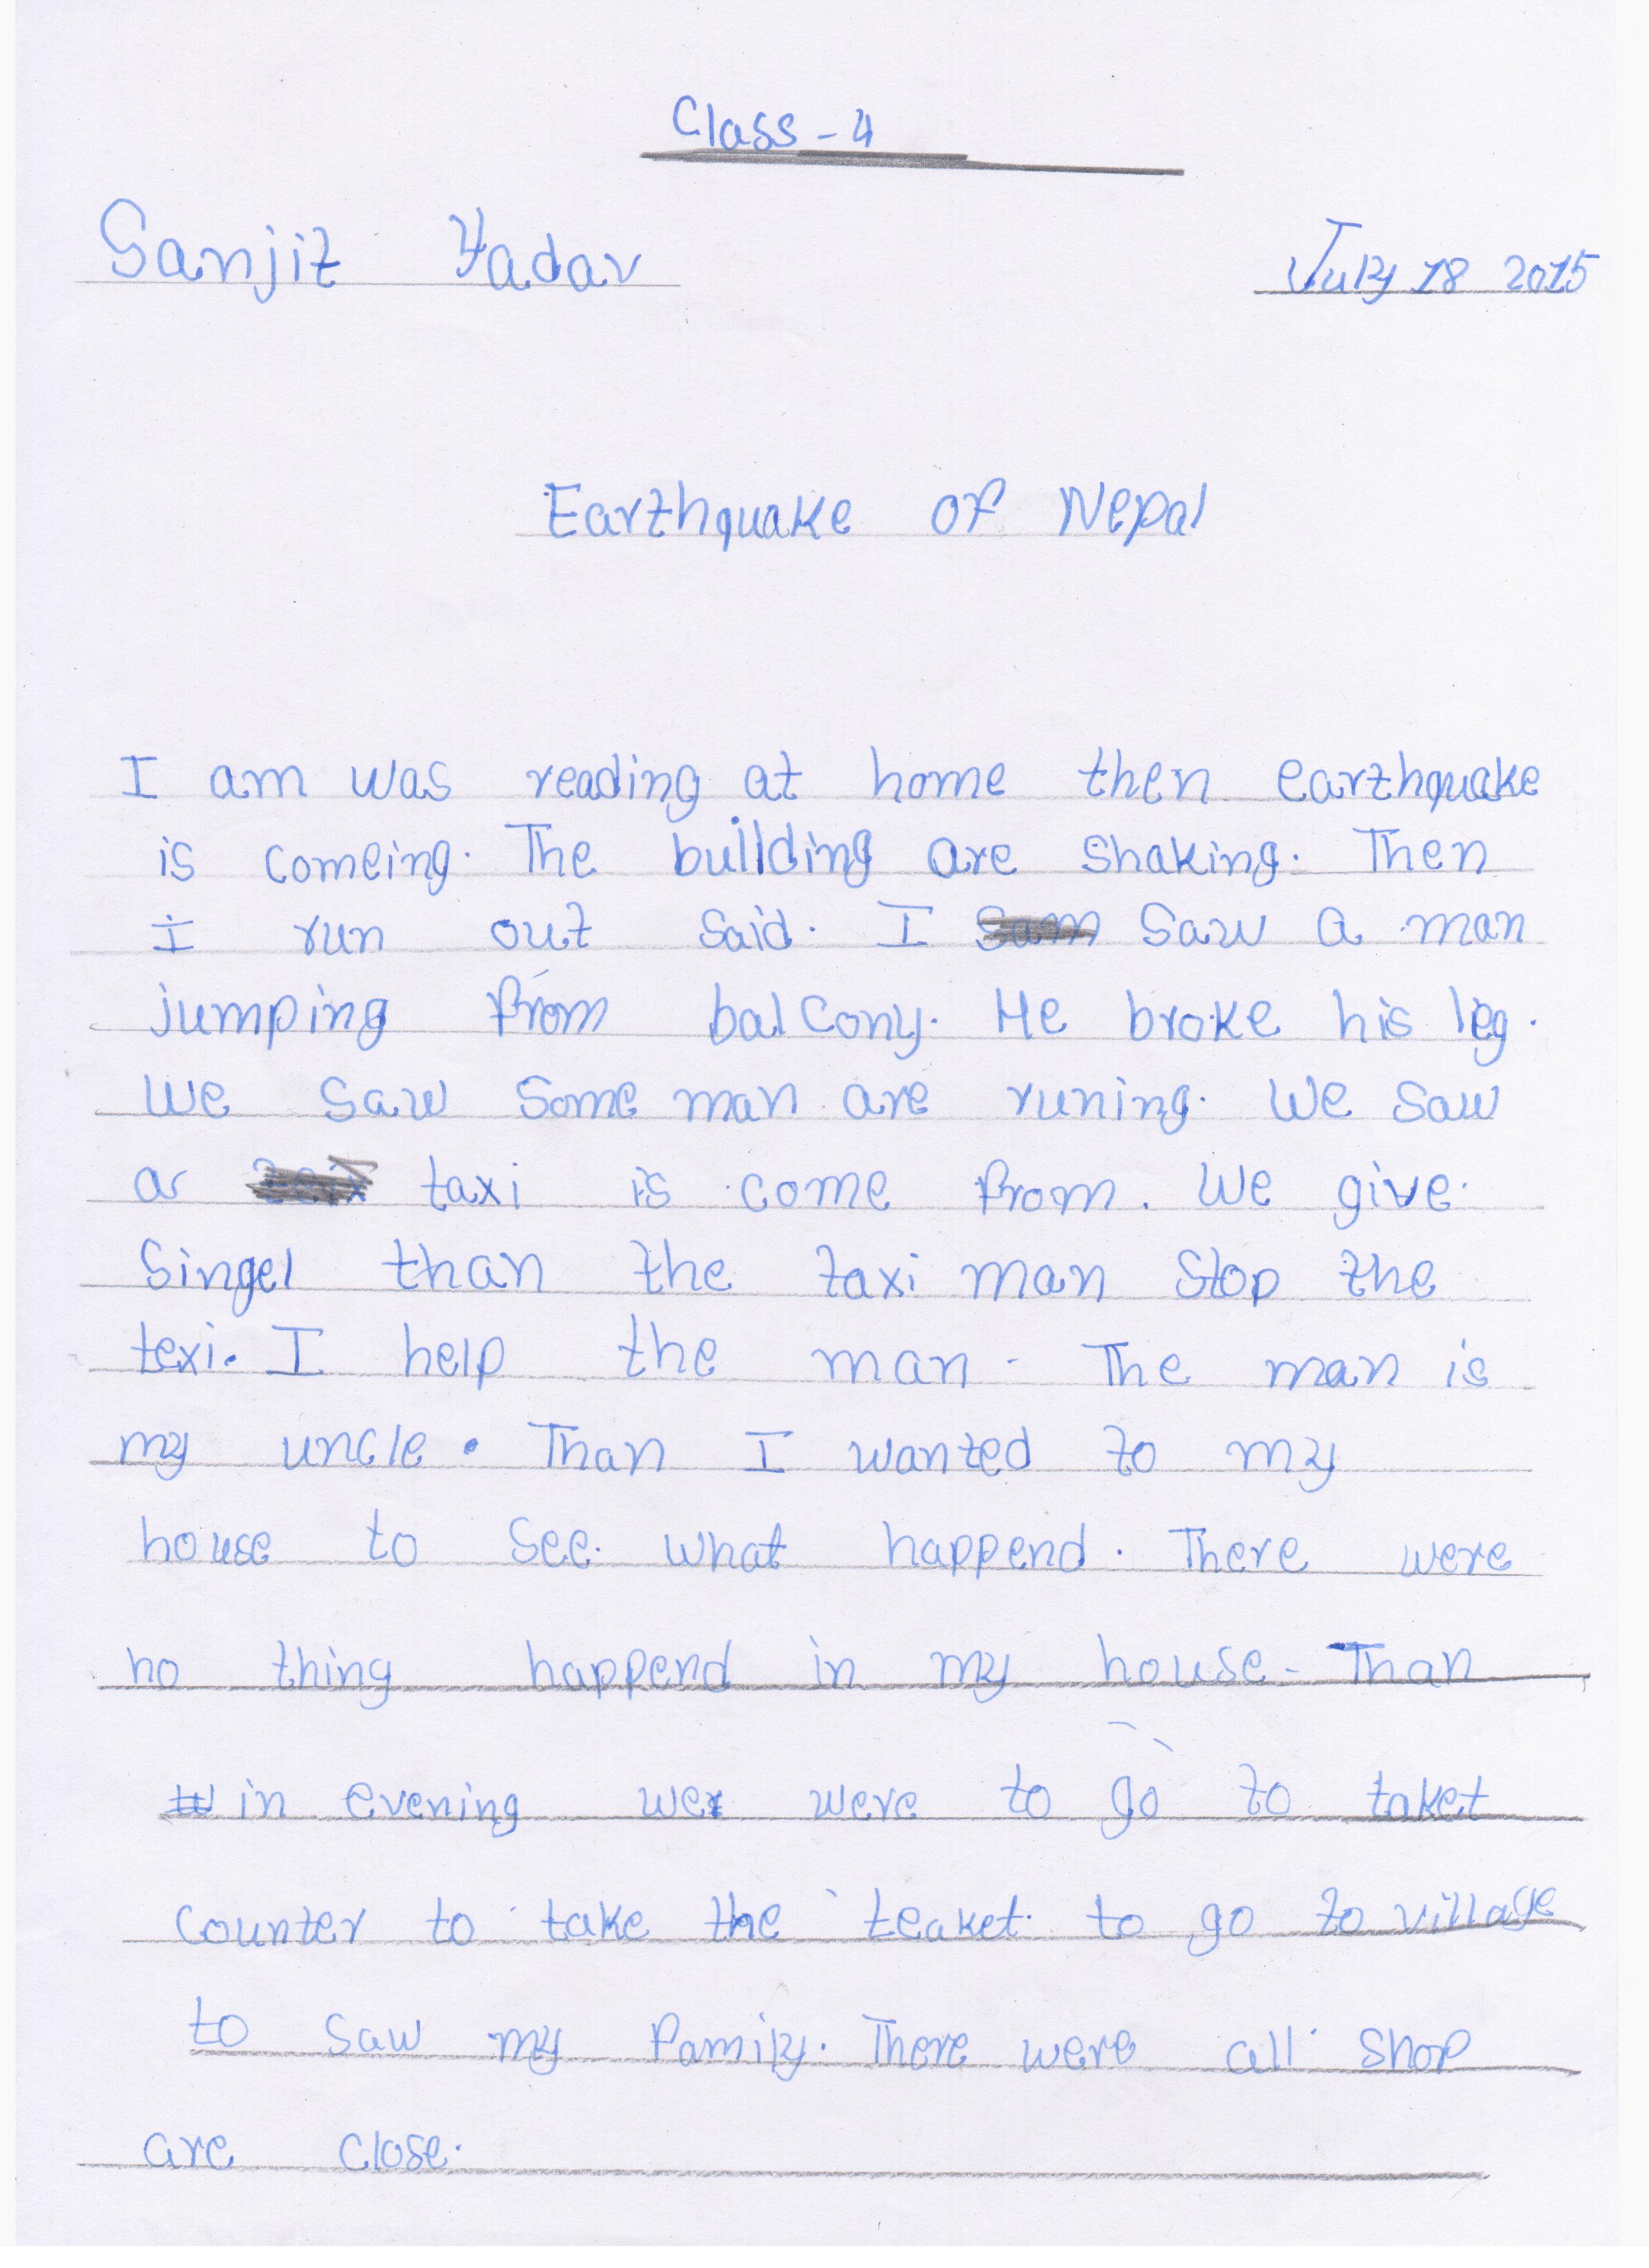 Class - 4
Sanjit Yadav July 18 2015
Earthquake of Nepal
I am was reading at home then earthquake
is comeing. The building are shaking. Then
I run out said. I saw a man
jumping from balcony. He broke his leg.
We saw some man are runing. We saw
a taxi is come from. We give
singel than the taxi man stop the
texi. I help the man. The man is
my uncle. Than I wanted to my
house to see what happend. There were
no thing happend in my house. Than
in evening wer were to go to taket
counter to take the teaket to go to village
to saw my family. There were all shop
are close.